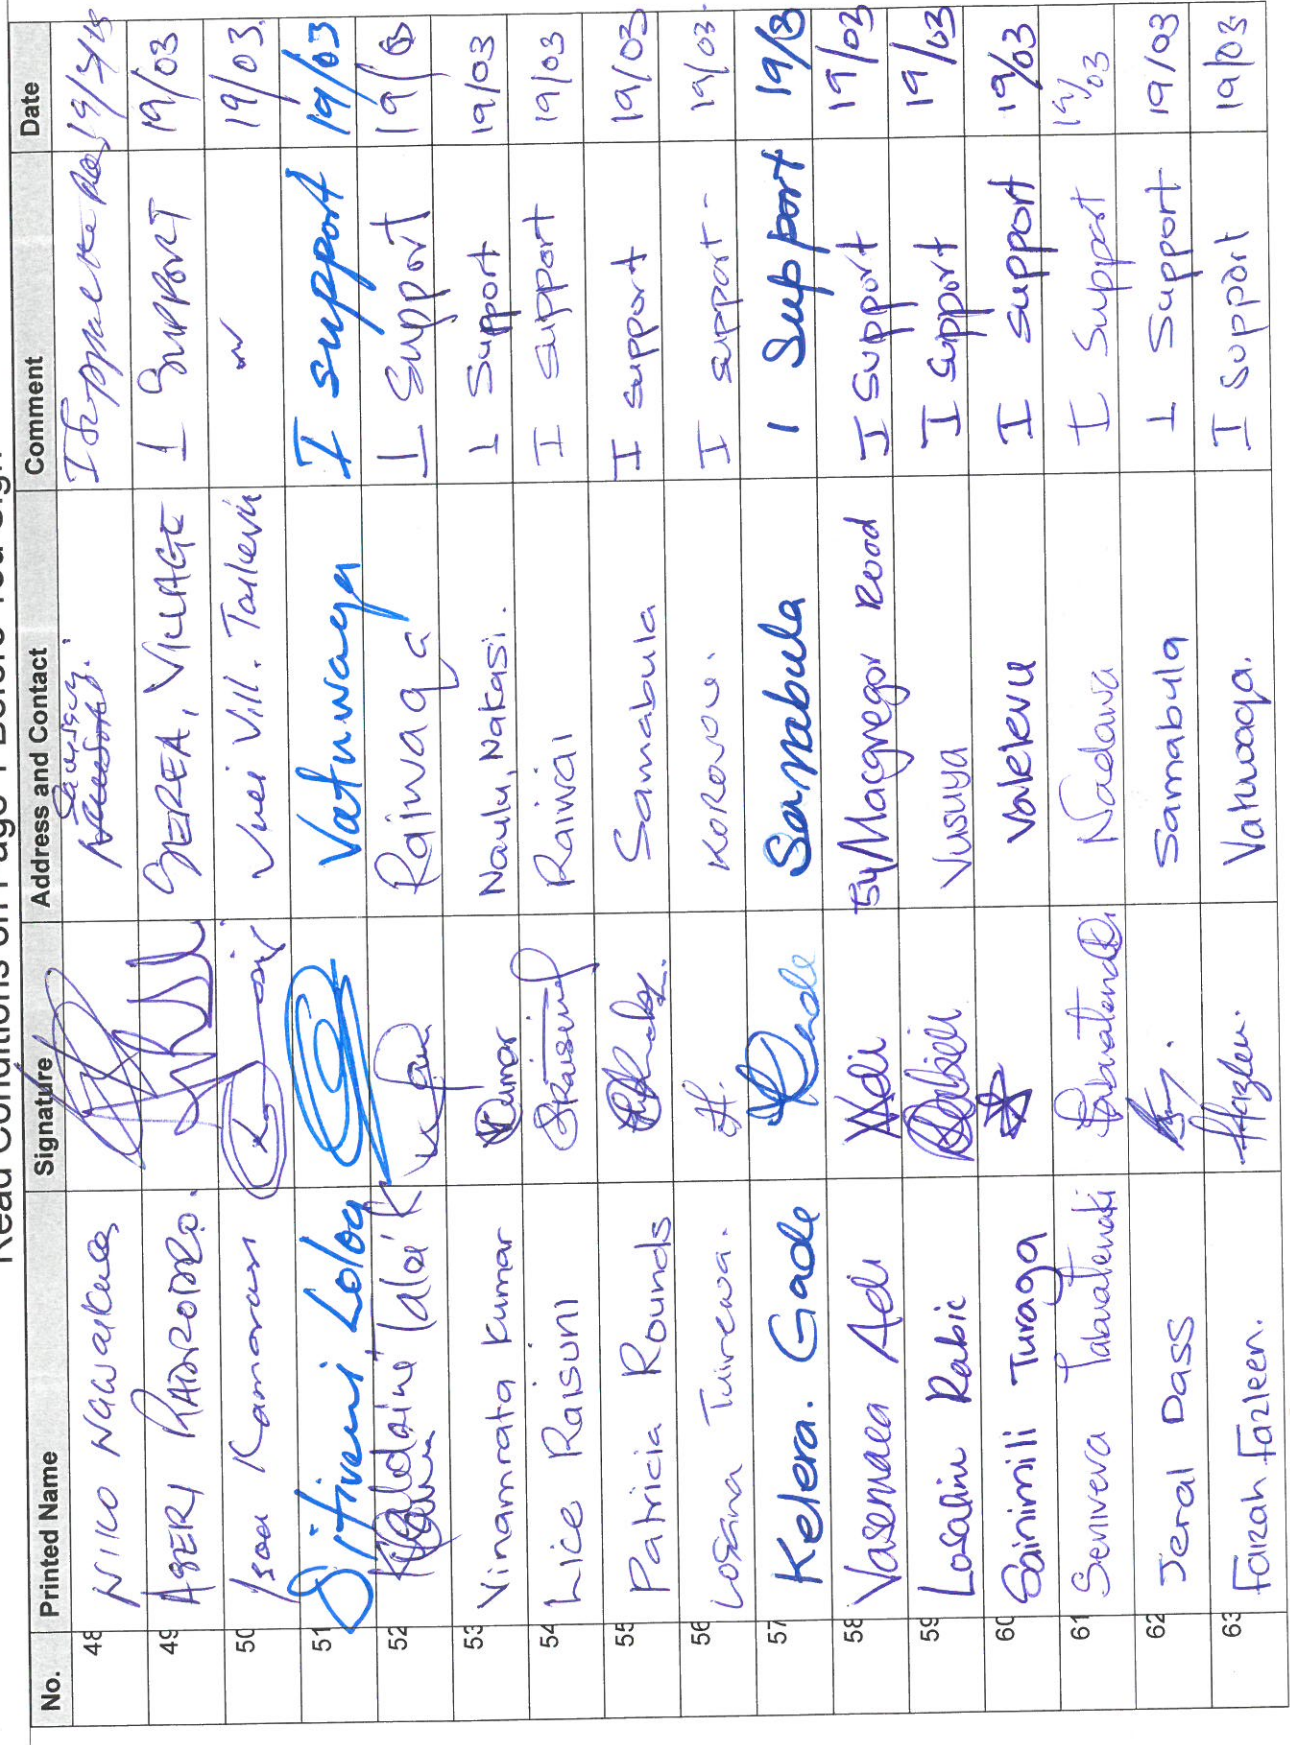 Read Conditions on Page 1 Before You Sign
No. Printed Name Signature Address and Contact Comment Date
48 NIKO NAWAIKULA I Support the 19/3/18
49 ASERI RADRODRO. SEREA, VILLAGE I SUPPORT 19/03
50 Isoa Vill. Tailevu 19/03.
51 Sitiveni Loloq Vatuwaqa I support 19/03
52 Raiwaqa I Support 19/03
53 Vinamrata Kumar Kumar Naulu, Nakasi. I Support 19/03
54 Lice Raisuni Raiwai I support 19/03
55 Patricia Rounds Samabula I support 19/03
56 Losana Tuirewa. Korovou. I support - 19/03.
57 Kelera. Gade Samabula I Support 19/3
58 Vasemaca Adi Adi 54 Macgregor Road I support 19/03
59 Losalini Rabic Vusuya I support 19/03
60 Sainimili Turaga Valelevu I support 19/03
61 Senivera Nadawa I Support 19/03
62 Jeral Dass Samabula I Support 19/03
63 Faizah Fazleen. Vatuwaqa. I Support 19/03.